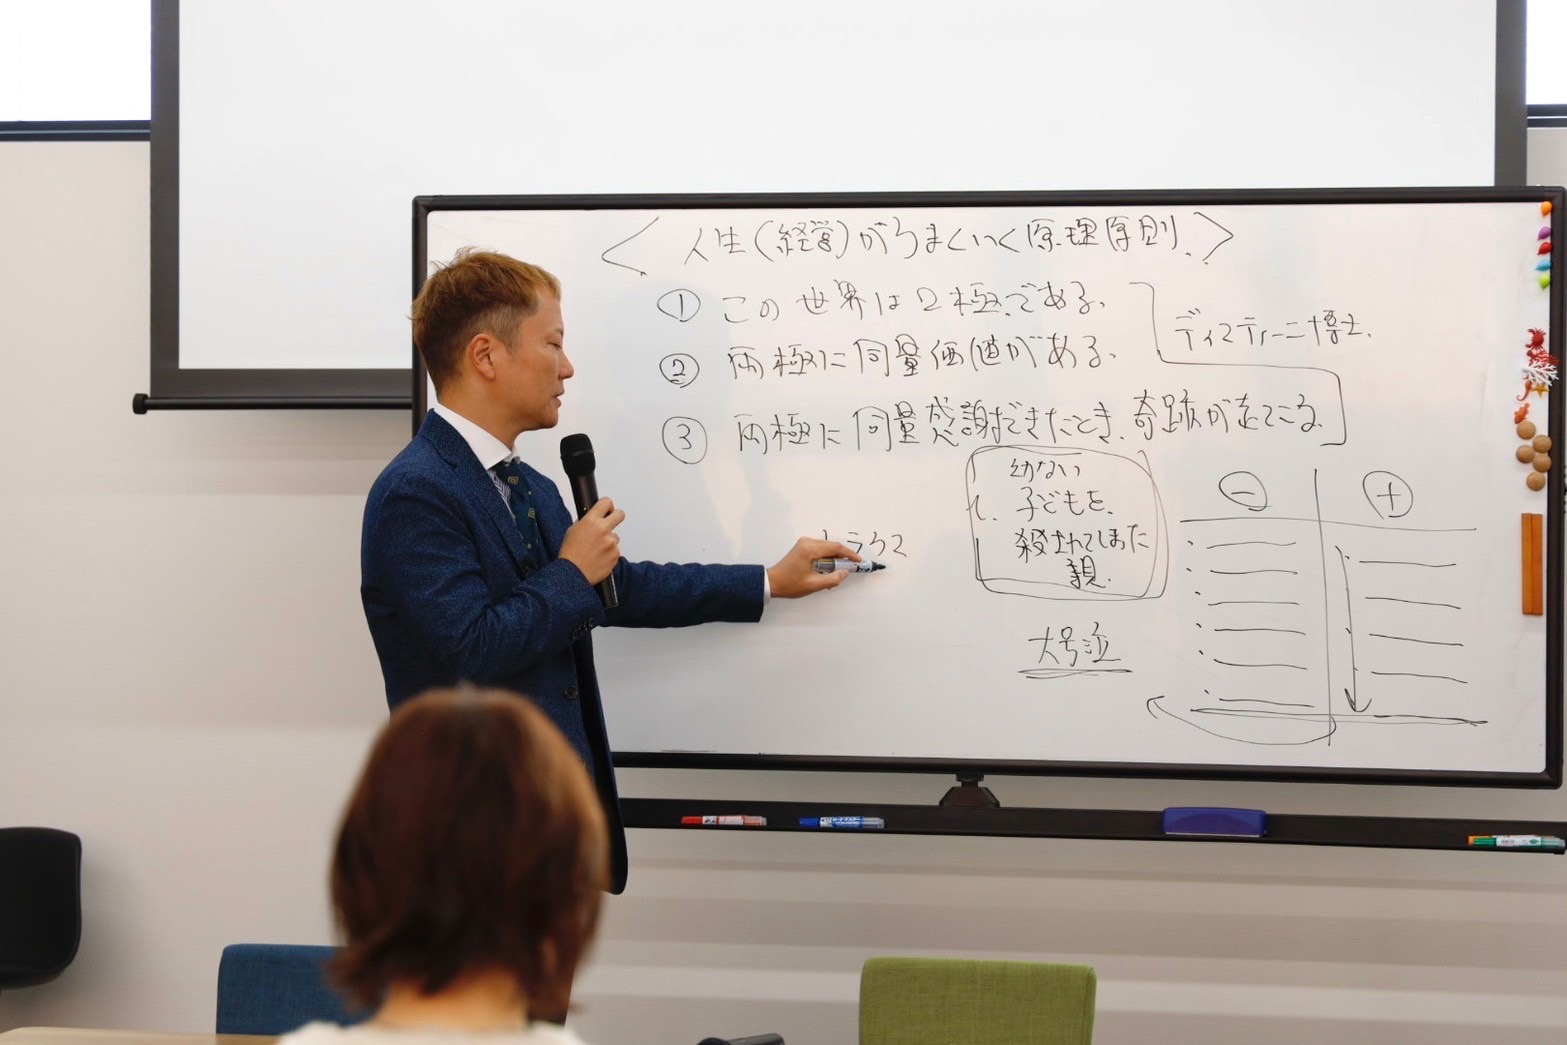 <人生(経営)がうまくいく原理原則>
① この世界は2極である。
② 両極に同量価値がある。
ディマティーニ博士
③ 両極に同量感謝できたとき、奇跡が起こる。
幼ない
子どもを、
殺されてしまった
親
⊖ ⊕
トラウマ
大号泣